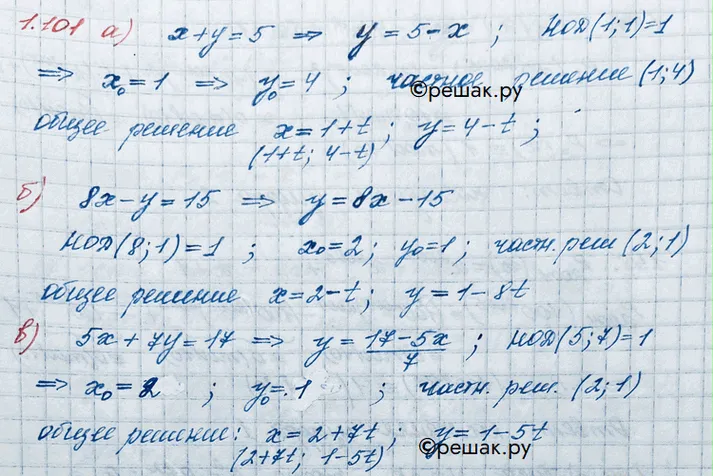 1.101 а) x+y=5 ⇒ y=5-x ; НОД(1;1)=1
⇒ x₀=1 ⇒ y₀=4 ; частное решение (1;4)
©решак.ру
общее решение x=1+t ; y=4-t ;
(1+t; 4-t)
б) 8x-y=15 ⇒ y=8x-15
НОД(8;1)=1 ; x₀=2; y₀=1; частн. реш (2;1)
общее решение x=2-t; y=1-8t
в) 5x+7y=17 ⇒ y=17-5x/7 ; НОД(5;7)=1
⇒ x₀=2 ; y₀=1 ; частн. реш. (2;1)
общее решение: x=2+7t ; y=1-5t
(2+7t; 1-5t)
©решак.ру